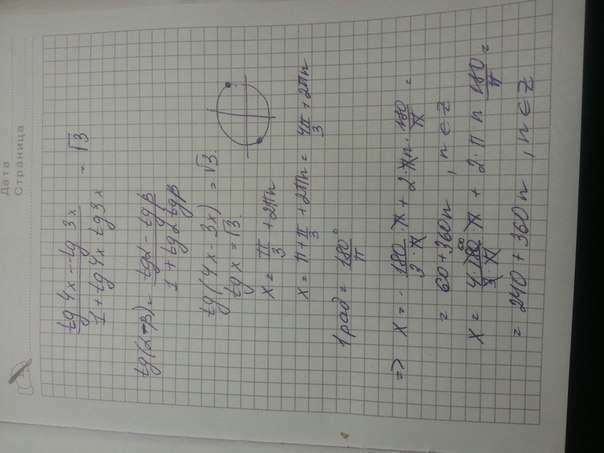 Дата
Страница
tg 4x - tg 3x / 1 + tg 4x tg 3x = √3
tg(α-β) = tgα - tgβ / 1 + tgα tgβ
tg(4x - 3x) = √3
tg x = √3
x = π/3 + 2πn
x = π + π/3 + 2πn = 4π/3 + 2πn
1 рад = 180°/π
=> x = 180/3·π π + 2·πn · 180/π =
= 60 + 360n, n ∈ Z
x = 4·180/3·π π + 2·π n 180/π =
= 240 + 360n, n ∈ Z